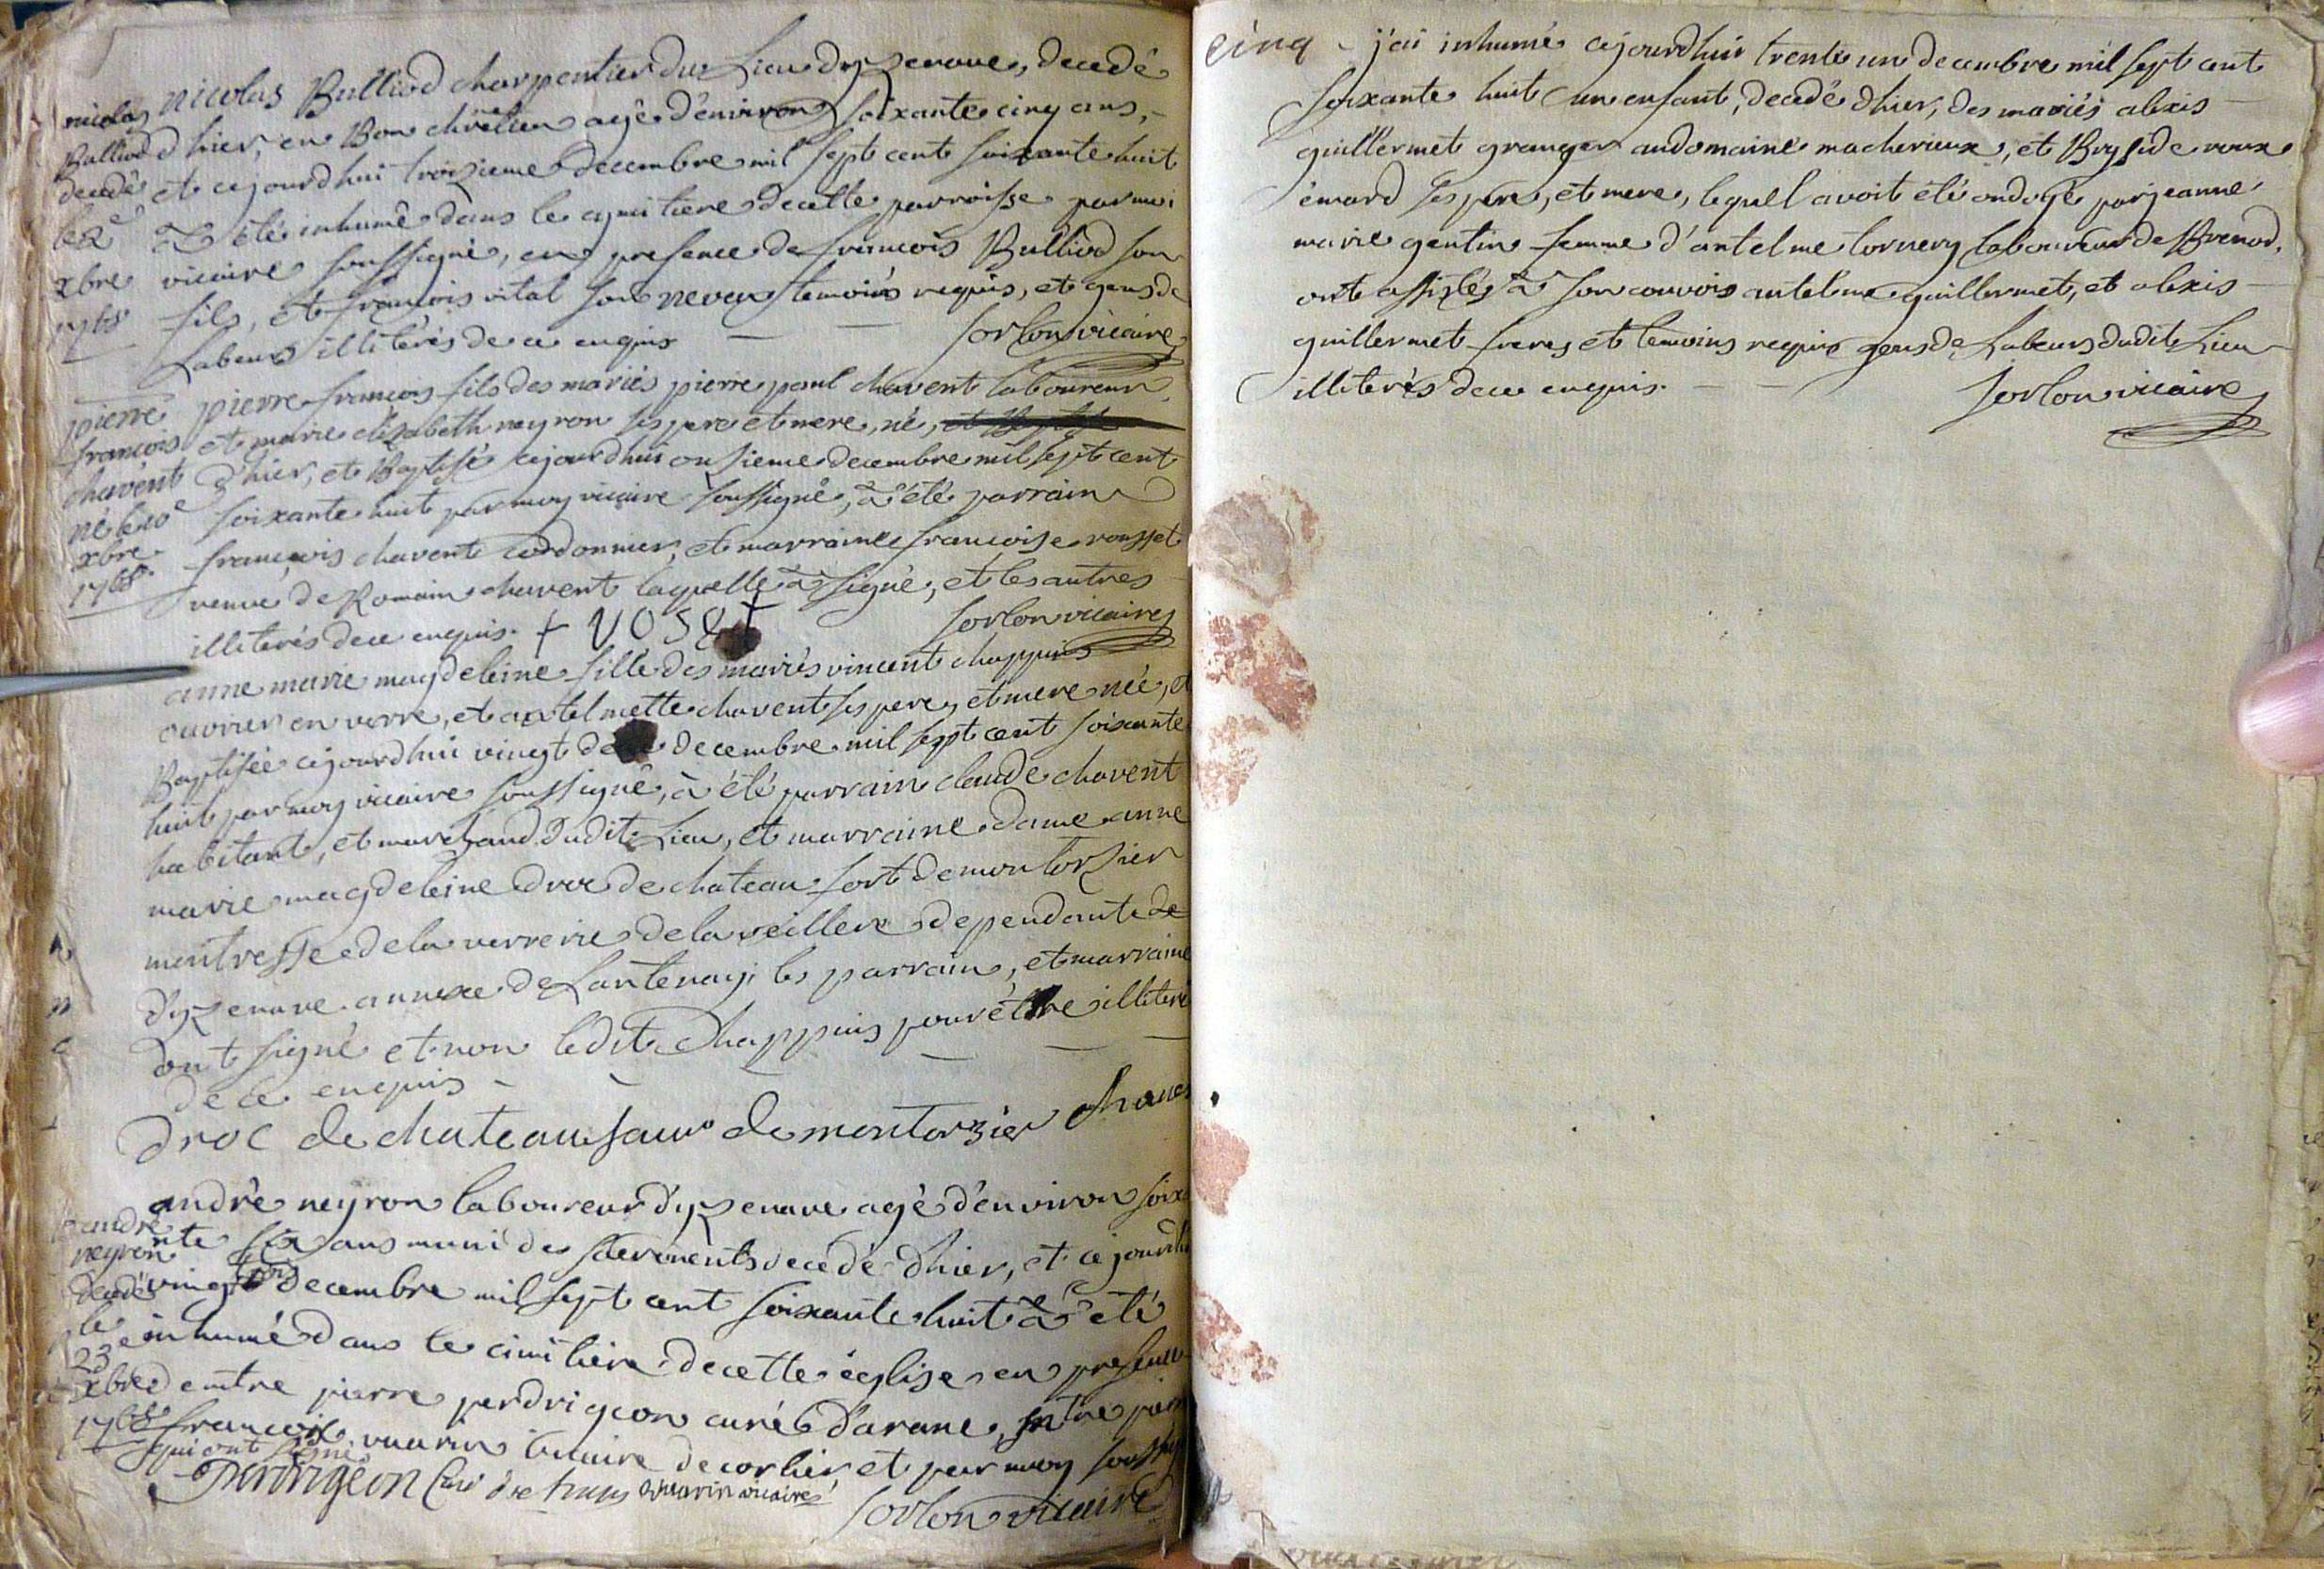 nicolas Bulliod charpentier du Lieu dyzenave, decedé
d'hier, en Bon chrêtien agé d'environ soixante cinq ans,
et cejourd'hui troizieme decembre mil sept cent soixante huit
a été inhumé dans le cymitiere de cette parroisse par moi
vicaire soussigné, en presence de francois Bulliod son
fils, et francois vital son neveu temoins requis, et gens de
Labeurs illiterés de ce enquis
sorlon vicaire
nicolas
Bulliod
decedé
le 2e
xbre
1768
pierre francois fils des mariés pierre paul chavent laboureur,
et marie elizabeth neyron ses pere et mere, né,
d'hier, et Baptisé cejourdhui onsieme decembre mil sept cent
soixante huit par moy vicaire soussigné, à été parrain
francois chavent cordonnier, et marraine francoise rousset
veuve de Romain chavent laquelle à signé, et les autres
illiterés de ce enquis.
sorlon vicaire
pierre
francois
chavent
né le 10e
xbre
1768
anne marie magdeleine fille des mariés vincent chappuis
ouvrier en verre, et antelmette chavent ses pere, et mere née, et
Baptisée cejourdhui vingt decembre mil sept cent soixante
huit par moy vicaire soussigné, à été parrain claude chavent
habitant, et marchand dudit Lieu, et marraine dame anne
marie magdeleine droc de chateau fort de montorsier
mentresse de la verrerie de la veillere dependante de
dyzenave annexe de Lantenay, les parrain, et marraine
ont signé et non ledit Chappuis pour être illiteré
de ce enquis
droc de chateaufaur de montorzier Chaven
andré neyron laboureur d'yzenave agé d'environ soixa
nte six ans muni des sacrements decedé d'hier, et cejourdh
vingt decembre mil sept cent soixante huit à été
inhumé dans le cimitiere de cette église en presence
de mtre pierre perdrigeon curé d'arane,
francois vuarin vicaire de corlier et par moy soussig
qui ont signé
Perdrigeon Curé vuarin vicaire
sorlon vicaire
andré
neyron
decedé
le
23e
xbre
1768
cinq - j'ai inhumé cejourdhuis trente un decembre mil sept cent
soixante huit un enfant, decedé d'hier, des mariés alexis
guillermet granger au domaine macherieux, et Brygide roux
émard ses pere, et mere, lequel avoit été ondoyé par jeanne
marie gentin femme d'antelme tornery laboureur de Brenod,
ont assistés à son convois antelme guillermet, et alexis
guillermet freres et temoins requis gens de Labeurs dudit Lieu
illiterés de ce enquis.
sorlon vicaire